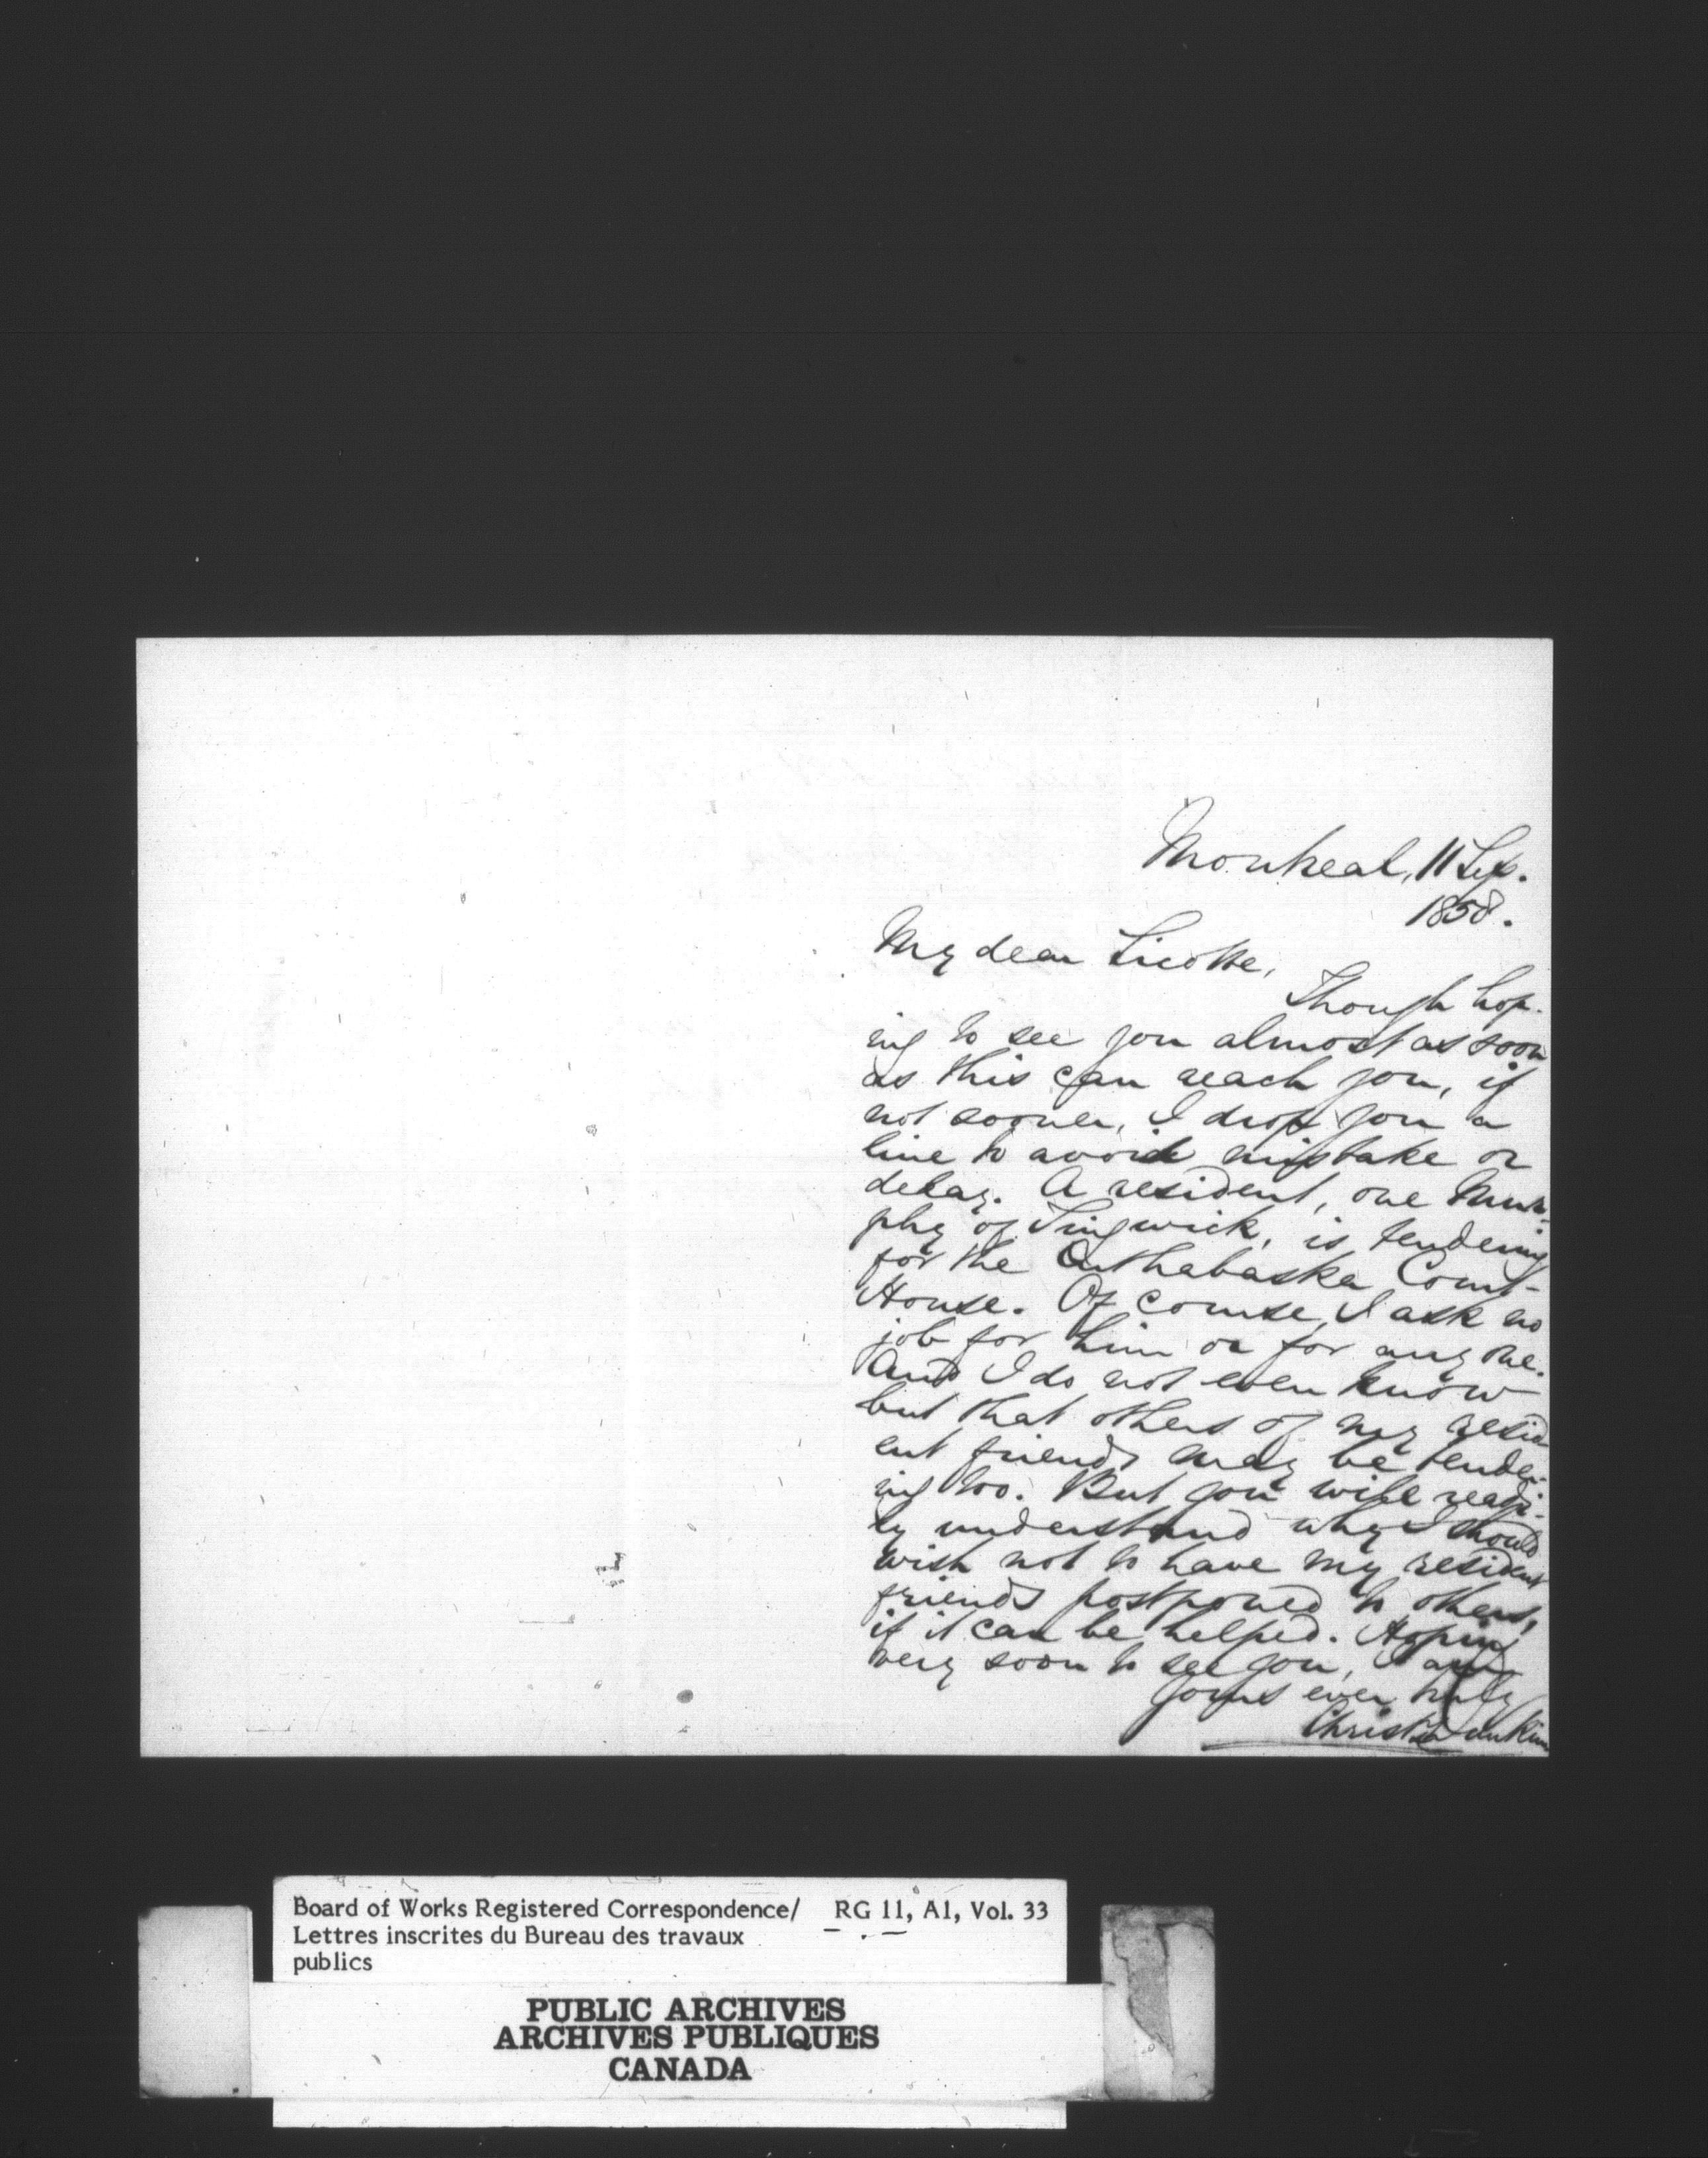 Montreal, 11 Sep.
1858.
My dear Sicotte,
Though hop-
ing to see you almost as soon
as this can reach you, if
not sooner, I drop you a
line to avoid mistake or
delay. A resident, one Mur-
phy of Tingwick, is tendering
for the Arthabaska Court-
House. Of course, I ask no
job for him or for any one.
And I do not even know
but that others of my resid-
ent friends may be tender-
ing too. But you will readi-
ly understand why I should
wish not to have my resident
friends postponed to others,
if it can be helped. Hoping
very soon to see you, I am
yours ever truly
Christr Dunkin
Board of Works Registered Correspondence/ RG 11, A1, Vol. 33
Lettres inscrites du Bureau des travaux
publics
PUBLIC ARCHIVES
ARCHIVES PUBLIQUES
CANADA